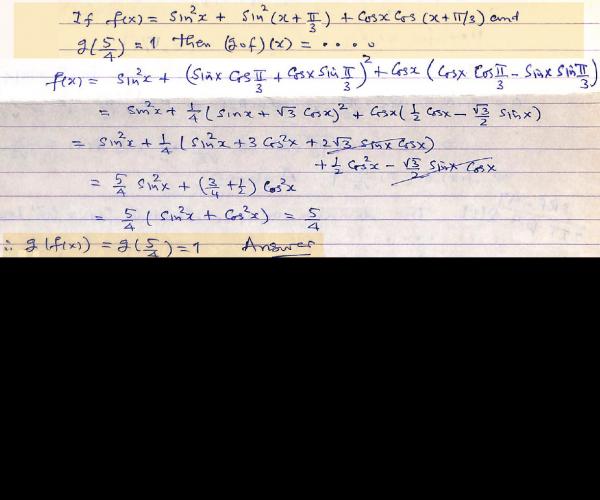 If f(x) = sin²x + sin²(x + π/3) + cosx cos(x + π/3) and
g(5/4) = 1 then (gof)(x) = ....
f(x) = sin²x + (sinx cos π/3 + cosx sin π/3)² + cosx (cosx cos π/3 − sinx sin π/3)
= sin²x + 1/4 (sinx + √3 cosx)² + cosx (1/2 cosx − √3/2 sinx)
= sin²x + 1/4 (sin²x + 3 cos²x + 2√3 sinx cosx)
+ 1/2 cos²x − √3/2 sinx cosx
= 5/4 sin²x + (3/4 + 1/2) cos²x
= 5/4 (sin²x + cos²x) = 5/4
∴ g(f(x)) = g(5/4) = 1 Answer